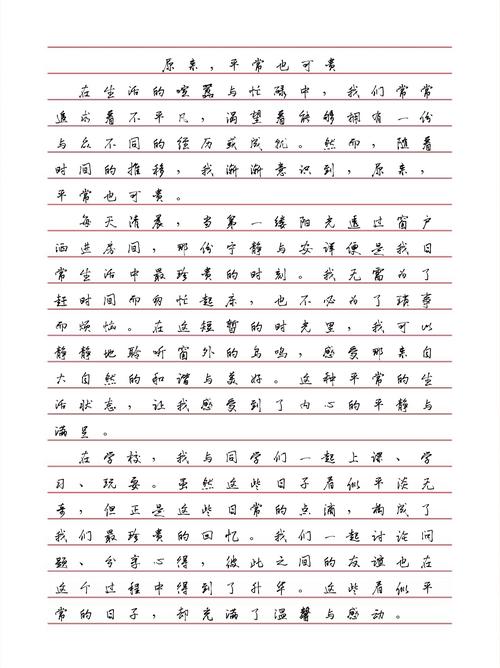 原来，平常也可贵
在生活的喧嚣与忙碌中，我们常常
追求着不平凡，渴望着能够拥有一份
与众不同的经历或成就。然而，随着
时间的推移，我渐渐意识到，原来，
平常也可贵。
每天清晨，当第一缕阳光透过窗户
洒进房间，那份宁静与安详便是我日
常生活中最珍贵的时刻。我无需为了
赶时间而匆忙起床，也不必为了琐事
而烦恼。在这短暂的时光里，我可以
静静地聆听窗外的鸟鸣，感受那来自
大自然的和谐与美好。这种平常的生
活状态，让我感受到了内心的平静与
满足。
在学校，我与同学们一起上课、学
习、玩耍。虽然这些日子看似平淡无
奇，但正是这些日常的点滴，构成了
我们最珍贵的回忆。我们一起讨论问
题、分享心得，彼此之间的友谊也在
这个过程中得到了升华。这些看似平
常的日子，却充满了温馨与感动。